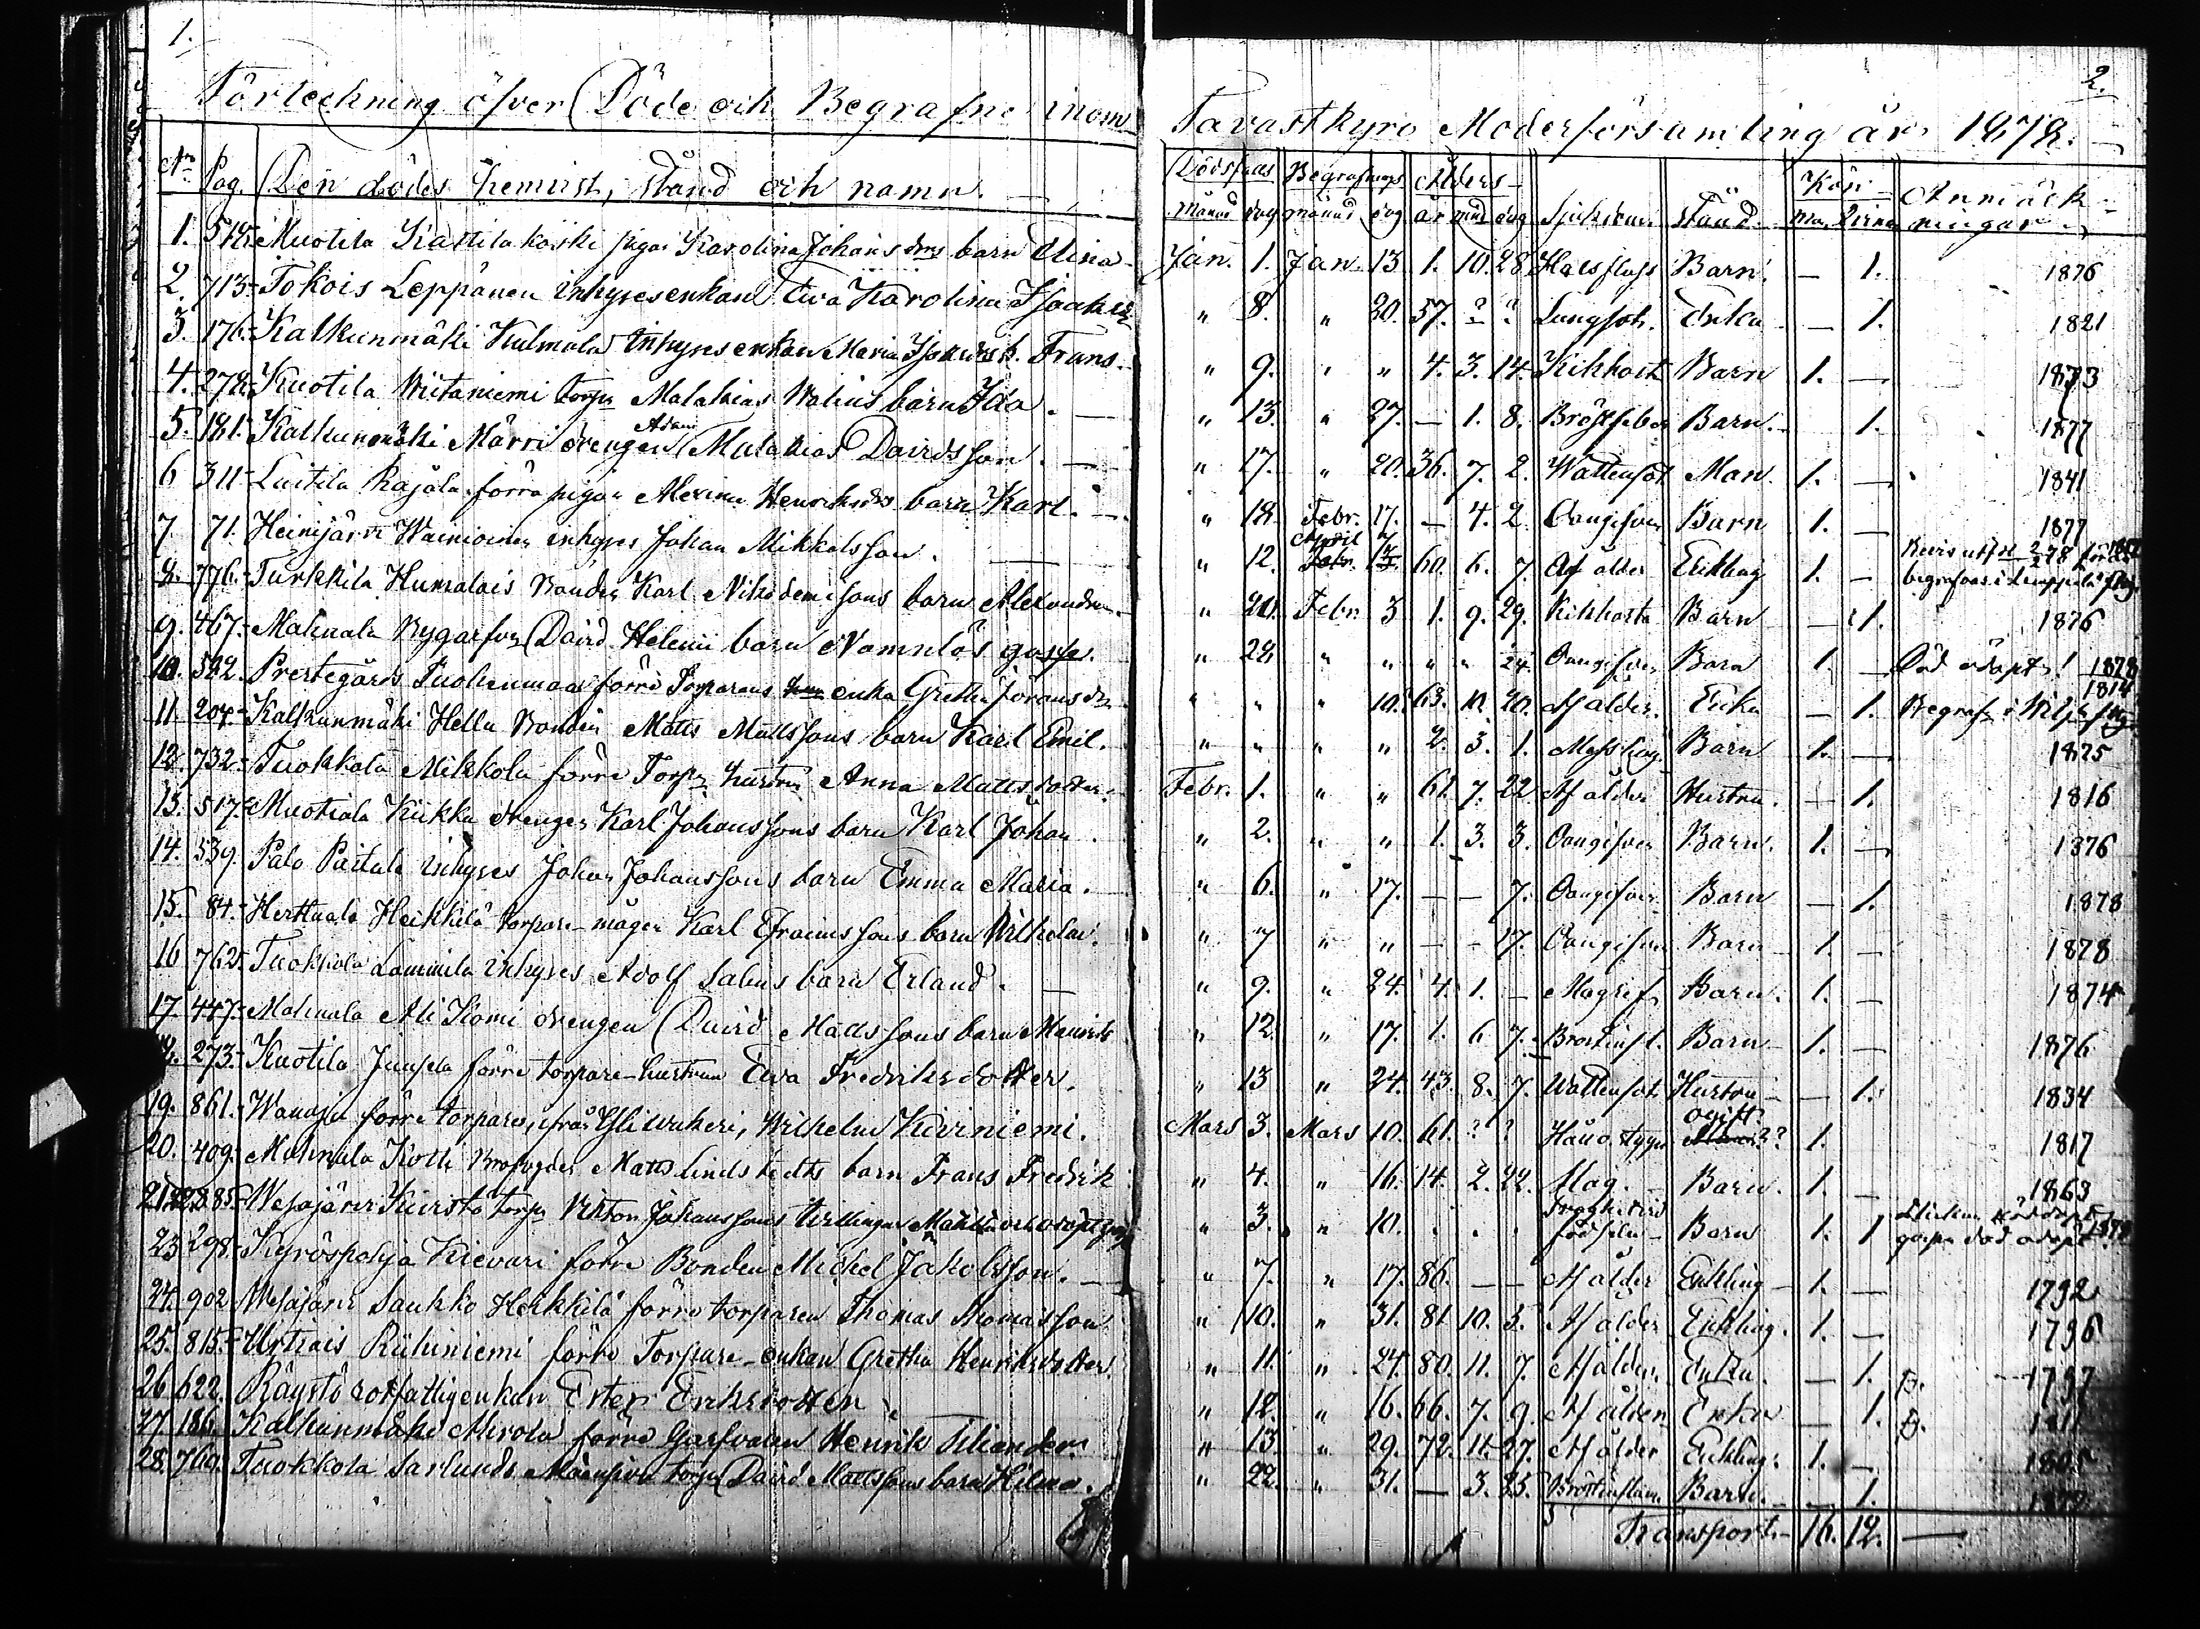 1.
Förteckning öfver Döde och Begrafne inom
No Pag. Den dödes hemvist, stånd och namn.
1. 518. Muotila Kattilakoski pigan Karolina Johansdrs barn Mina
2. 713. Tokois Leppänen inhyses enkan Eva Karolina Isaaksdr
3. 176. Kalkunmäki Kulmala inhyses enkan Maria b. Frans.
4. 278. Kuotila Wiitaniemi torp. Malakias Walins barn Ida.
5. 181. Kalkunmäki Märri drengen Adam Malakias Davidsson.
6 311. Laitila Rajala förra pigan Alexina Henriksdrs barn Karl.
7. 71. Heinijärvi Wäinioinen inhyses Johan Mikkelsson.
8. 776. Turkkila Humalois Bonden Karl Nikodemisons barn Alexandra.
9. 467. Mahnala Nygarfven David Helenii barn Namnlös gosse.
10. 522. Prestegårds Tuohenmaa förre Torparens enka Gretha Göransdr
11. 204. Kalkunmäki Hella Bonden Matts Mattssons barn Karl Emil.
12. 732. Tuokkola Mikkola förre Torp. hustru Anna Mattsdotter.
13. 517. Muotiala Kiikka drengen Karl Johanssons barn Karl Johan.
14. 539. Palo Paitula inhyses Johan Johanssons barn Emma Maria.
15. 84. Herttuala Heikkilä torpare-mågen Karl Efraimssons barn Wilhelm.
16 762. Tuokkola Lammila inhyses Adolf Salins barn Erland.
17. 447. Mahnala Ali Komi drengen David Mattssons barn Maurits
273. Kuotila Juupela förre torpare-hustrun Eva Fredriksdotter.
19. 861. förre torparen, från Yliwuheri, Wilhelm Kiviniemi.
20. 409. Mahnala Koth Matts Lindstedts barn Frans Fredrik
21. 22. 885. Wesajärvi Kuusto torp. Viktor Johanssons tvillingar Matilda och
23 298. Kyröspohja Kievari förre Bonden Mickel Jakobsson.
24. 902 Wesajärvi Saukko Heikkilä förre torparen Thomas Thomasson.
25. 815. Urtiais Riihiniemi förre Torpare-enkan Gretha Henriksdotter.
26 622. Räystö rotfattigenkan Ester Eriksdotter
27. 186. Kalkunmäki Mirola förre Garfvaren Henrik Tiliander.
28. 760. Tuokkola Sarlunds torp. David Mattssons barn Hilma.
2.
Tavastkyro Moderförsamling år 1878.
Dödsfalls Begrafnings Ålders- Kön Anmärk-
Månad dag månad dag år mnd dag Sjukdom. Stånd. Man. Qvinna ningar.
Jan. 1. Jan. 13. 1. 10. 28. Halsfluss Barn. — 1. 1876
" 8. " 20. 57. ? ? Lungsot. Enka — 1. 1821
" 9. " " 4. 3. 14. Kikhosta Barn 1. — 1873
" 13. " 27. — 1. 8. Bröstfeber Barn. — 1. 1877
" 17. " 20. 36. 7. 2. Wattensot Man. 1. — 1841
" 18. Febr. 17. — 4. 2 Oangifven Barn 1. — 1877
" 12. April 60. 6. 7. Af ålder Enkling 1. —
" 20. Febr. 3 1. 9. 29. Kikhosta Barn — 1. 1876
" 28. " " " " 24. Oangifven Barn 1. — Död odöpt! 1878
" " " 10. 63. 10. 20. Af ålder. Enka — 1. 1814
" " " " 2. 3. 1. Barn 1. — 1875
Febr. 1. " " 61. 7. 22. Af ålder Hustru. — 1. 1816
" 2. " " 1. 3. 3. Oangifven Barn. 1. — 1876
" 6. " 17. — — 7. Oangifven Barn — 1. 1878
" 7 " " — — 17. Oangifven Barn 1. — 1878
" 9. " 24. 4. 1. — Magref. Barn. 1. — 1874
" 12. " 17. 1. 6 7. Bröstinfl. Barn 1. — 1876
" 13 " 24. 43. 8. 7. Wattensot Hustru — 1. 1834
Mars 3. Mars 10. 61. ? ? ogift? 1. 1817
" 4. " 16. 14. 2. 22. Mag. Barn. 1. — 1863
" 3. " 10. . . . Trög vid födseln Barn 1. 1
" 7. " 17. 86. — — Af ålder Enkling 1. — 1792
" 10. " 31. 81 10. 5. Af ålder Enkling. 1. — 1796
" 11. " 24. 80. 11. 7. Af ålder. Enka. — 1. 1797
" 12. " 16. 66. 7. 9. Af ålder Enka — 1. 1811
" 13. " 29. 72. 11. 27. Af ålder Enkling. 1. — 1805
" 22. " 31. — 3. 25. Bröstinflam. Barn. — 1. 1877
Transport. 16. 12. —